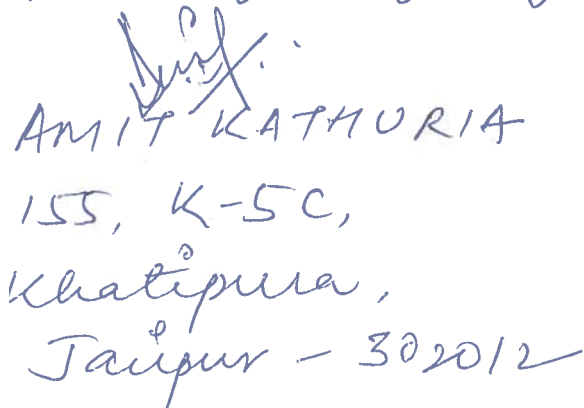 AMIT KATHURIA
155, K-5C,
Khatipura,
Jaipur - 302012